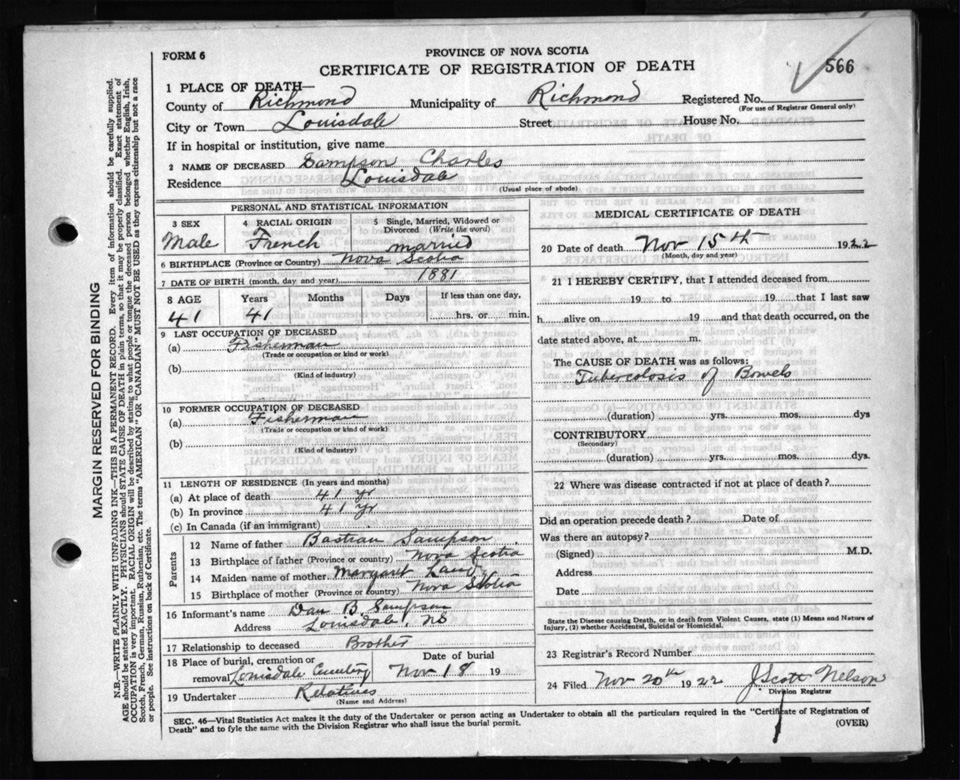 FORM 6
PROVINCE OF NOVA SCOTIA
CERTIFICATE OF REGISTRATION OF DEATH
566
1 PLACE OF DEATH—
County of Richmond Municipality of Richmond Registered No.
(For use of Registrar General only)
City or Town Louisdale Street House No.
If in hospital or institution, give name
2 NAME OF DECEASED Sampson Charles
Residence Louisdale
(Usual place of abode)
PERSONAL AND STATISTICAL INFORMATION
3 SEX 4 RACIAL ORIGIN 5 Single, Married, Widowed or Divorced (Write the word)
Male French married
6 BIRTHPLACE (Province or Country) Nova Scotia
7 DATE OF BIRTH (month, day and year) 1881
8 AGE Years Months Days If less than one day,
41 41 hrs. or min.
9 LAST OCCUPATION OF DECEASED
(a) Fisherman
(Trade or occupation or kind or work)
(b)
(Kind of industry)
10 FORMER OCCUPATION OF DECEASED
(a) Fisherman
(Trade or occupation or kind of work)
(b)
(Kind of industry)
11 LENGTH OF RESIDENCE (In years and months)
(a) At place of death 41 yr
(b) In province 41 yr
(c) In Canada (if an immigrant)
Parents
12 Name of father Bastian Sampson
13 Birthplace of father (Province or country) Nova Scotia
14 Maiden name of mother Margaret
15 Birthplace of mother (Province or country) Nova Scotia
16 Informant's name Dan B Sampson
Address Louisdale, NS
17 Relationship to deceased Brother
18 Place of burial, cremation or removal Louisdale Cemetery Date of burial Nov 18 19
19 Undertaker Relatives
(Name and Address)
MEDICAL CERTIFICATE OF DEATH
20 Date of death Nov 15th 1922
(Month, day and year)
21 I HEREBY CERTIFY, that I attended deceased from
19 to 19 that I last saw
h alive on 19 and that death occurred, on the
date stated above, at m.
The CAUSE OF DEATH was as follows:
Tubercolosis of Bowels
(duration) yrs. mos. dys
CONTRIBUTORY
(Secondary)
(duration) yrs. mos. dys.
22 Where was disease contracted if not at place of death?
Did an operation precede death? Date of
Was there an autopsy?
(Signed) M.D.
Address
Date
State the Disease causing Death, or in death from Violent Causes, state (1) Means and Nature of
Injury, (2) whether Accidental, Suicidal or Homicidal.
23 Registrar's Record Number
24 Filed Nov 20th 1922 J Scott Nelson
Division Registrar
SEC. 46—Vital Statistics Act makes it the duty of the Undertaker or person acting as Undertaker to obtain all the particulars required in the "Certificate of Registration of
Death" and to fyle the same with the Division Registrar who shall issue the burial permit.
(OVER)
MARGIN RESERVED FOR BINDING
N.B.—WRITE PLAINLY WITH UNFADING INK—THIS IS A PERMANENT RECORD. Every item of information should be carefully supplied.
AGE should be stated EXACTLY. PHYSICIANS should STATE CAUSE OF DEATH in plain terms, so that it may be properly classified. Exact statement of
OCCUPATION is very important. RACIAL ORIGIN will be described by stating to what people or tongue the deceased person belonged, whether English, Irish,
Scotch, French, German, Russian, Ruthenian, etc. The terms "AMERICAN" OR "CANADIAN" MUST NOT BE USED as they express citizenship but not a race
or people. See instructions on back of Certificate.